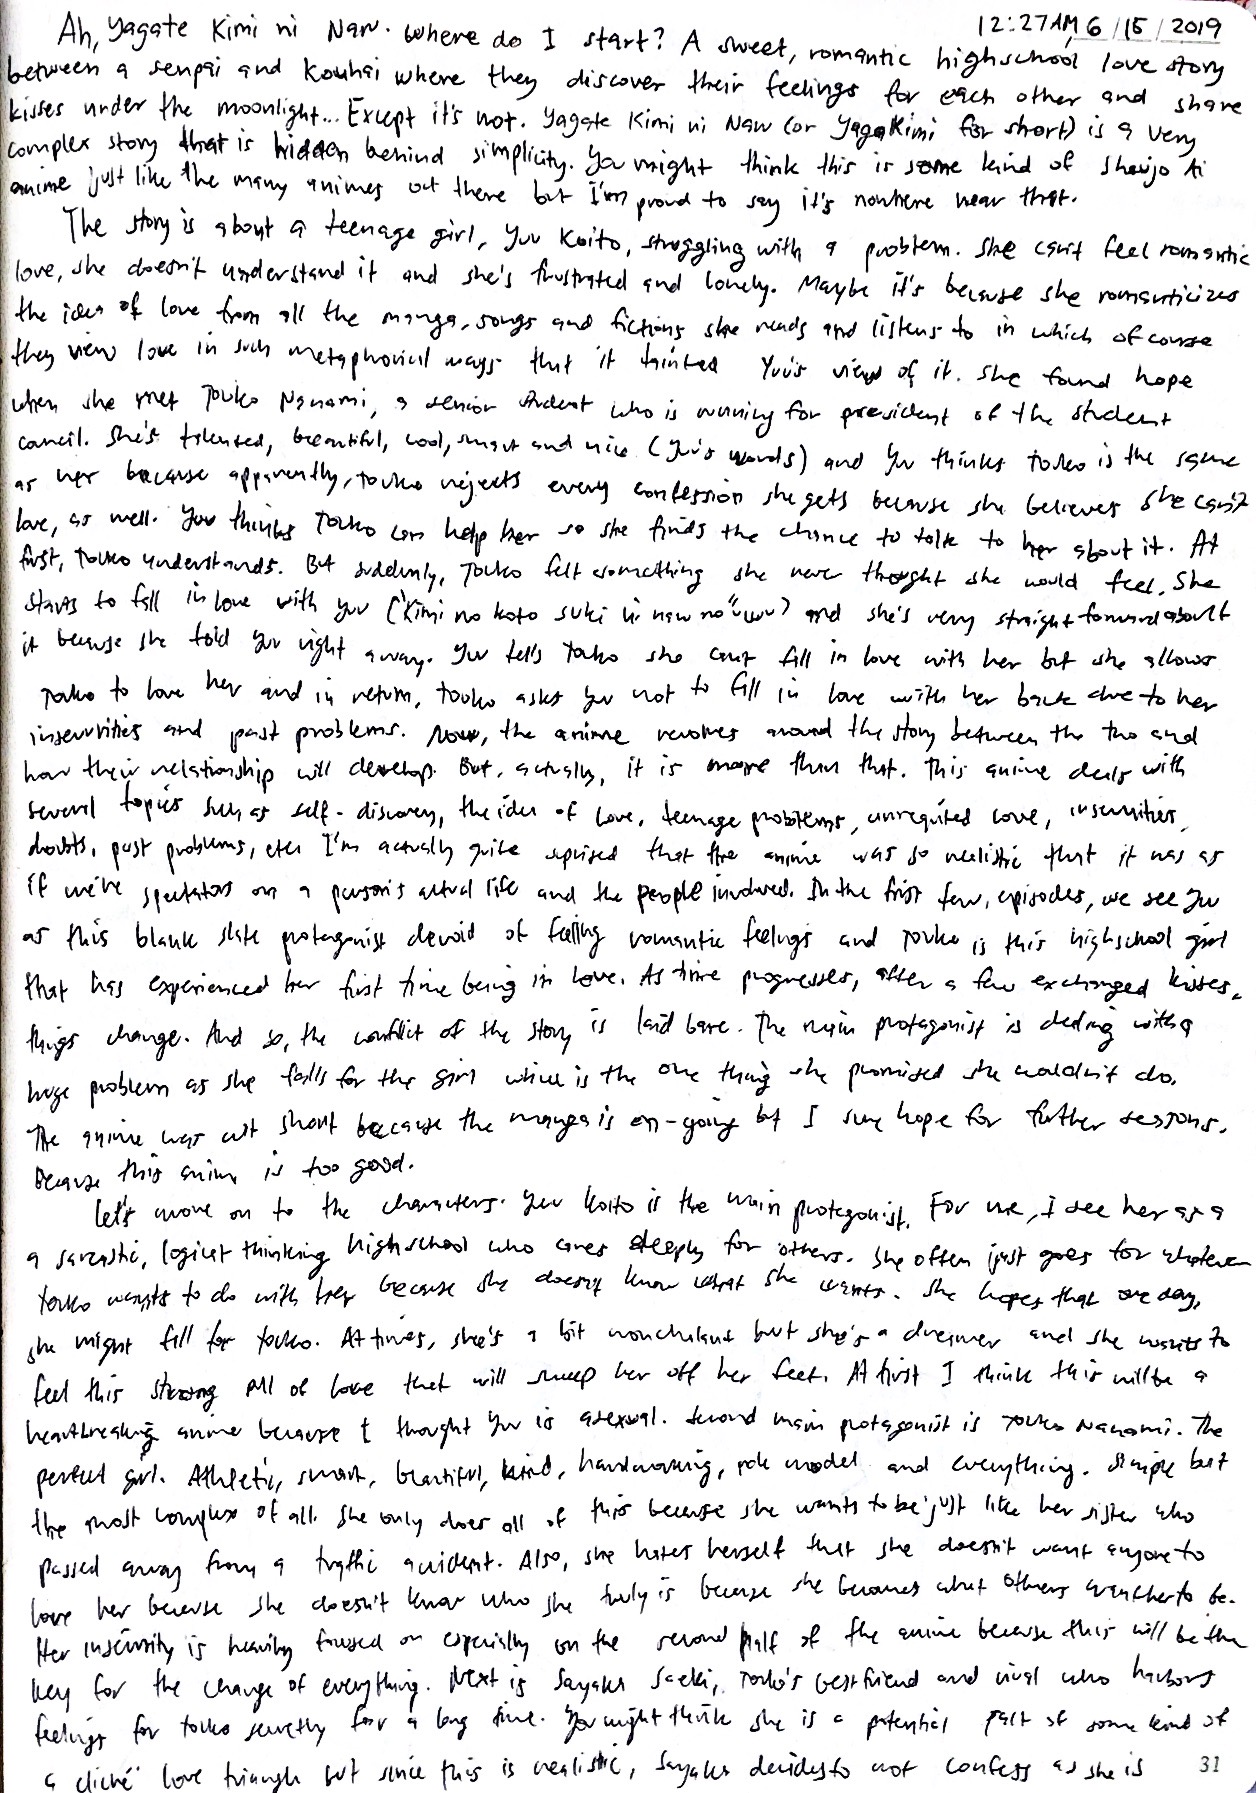 12:27AM, 6/15/2019
Ah, Yagate Kimi ni Naru. Where do I start? A sweet, romantic highschool love story
between a senpai and kouhai where they discover their feelings for each other and share
kisses under the moonlight... Except it's not. Yagate Kimi ni Naru (or YagaKimi for short) is a very
complex story that is hidden behind simplicity. You might think this is some kind of Shoujo Ai
anime just like the many animes out there but I'm proud to say it's nowhere near that.
The story is about a teenage girl, Yuu Koito, struggling with a problem. She can't feel romantic
love, she doesn't understand it and she's frustrated and lonely. Maybe it's because she romanticizes
the idea of love from all the manga, songs and fictions she reads and listens to in which of course
they view love in such metaphorical ways that it tainted Yuu's view of it. She found hope
when she met Touko Nanami, a senior student who is running for president of the student
council. She's talented, beautiful, cool, smart and nice (Yuu's words) and Yuu thinks Touko is the same
as her because apparently, Touko rejects every confession she gets because she believes she can't
love, as well. Yuu thinks Touko can help her so she finds the chance to talk to her about it. At
first, Touko understands. But suddenly, Touko felt something she never thought she would feel. She
starts to fall in love with Yuu ("Kimi no koto suki ni naru no" uwu) and she's very straight forward about
it because she told Yuu right away. Yuu tells Touko she can't fall in love with her but she allows
Touko to love her and in return, Touko asks Yuu not to fall in love with her back due to her
insecurities and past problems. Now, the anime revolves around the story between the two and
how their relationship will develop. But, actually, it is more than that. This anime deals with
several topics such as self-discovery, the idea of love, teenage problems, unrequited love, insecurities,
doubts, past problems, etc. I'm actually quite suprised that the anime was so realistic that it was as
if we're spectators on a person's actual life and the people involved. In the first few, episodes, we see Yuu
as this blank slate protagonist devoid of feeling romantic feelings and Touko is this highschool girl
that has experienced her first time being in love. As time progresses, after a few exchanged kisses,
things change. And so, the conflict of the story is laid bare. The main protagonist is dealing with a
huge problem as she falls for the girl which is the one thing she promised she wouldn't do.
The anime was cut short because the manga is on-going but I sure hope for further seasons.
Because this anime is too good.
Let's move on to the characters. Yuu Koito is the main protagonist. For me, I see her as a
a sarcastic, logical thinking highschool who cares deeply for others. She often just goes for whatever
Touko wants to do with her because she doesn't know what she wants. She hopes that one day,
she might fall for Touko. At times, she's a bit nonchalant but she's a dreamer and she wants to
feel this strong pull of love that will sweep her off her feet. At first I think this will be a
heartbreaking anime because I thought Yuu is asexual. Second main protagonist is Touko Nanami. The
perfect girl. Athletic, smart, beautiful, kind, hardworking, role model and everything. Simple but
the most complex of all. She only does all of this because she wants to be just like her sister who
passed away from a traffic accident. Also, she hates herself that she doesn't want anyone to
love her because she doesn't know who she truly is because she becomes what others want her to be.
Her insecurity is heavily focused on especially on the second half of the anime because this will be the
key for the change of everything. Next is Sayaka Saeki, Touko's bestfriend and rival who harbors
feelings for Touko secretly for a long time. You might think she is a potential part of some kind of
a cliché love triangle but since this is realistic, Sayaka decides to not confess as she is
31